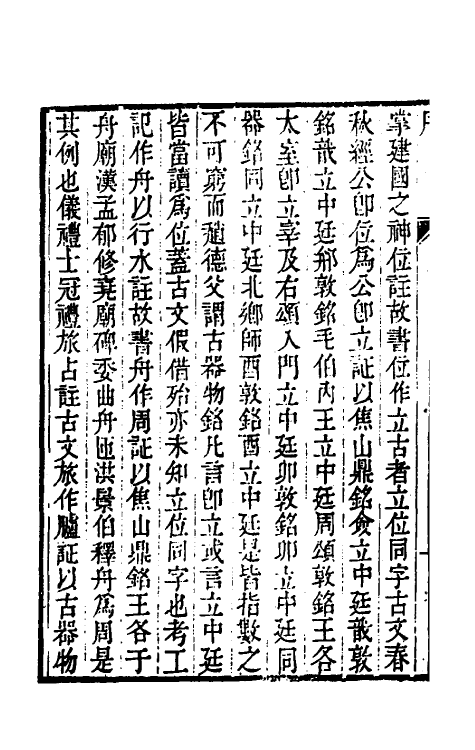 掌建國之神位註故書位作立古者立位同字古文春
秋經公卽位爲公卽立証以焦山鼎銘僉立中廷敔敦
銘敔立中廷䣙敦銘毛伯內王立中廷周頌敦銘王各
太室卽立宰及右頌入門立中廷卯敦銘卯立中廷同
器銘同立中廷北鄉師酉敦銘酉立中廷是皆指數之
不可窮而趙德父謂古器物銘凡言卽立或言立中廷
皆當讀爲位蓋古文假借殆亦未知立位同字也考工
記作舟以行水註故書舟作周証以焦山鼎銘王各于
舟廟漢孟郁修堯廟碑委曲舟匝洪景伯釋舟爲周是
其例也儀禮士冠禮旅占註古文旅作臚証以古器物